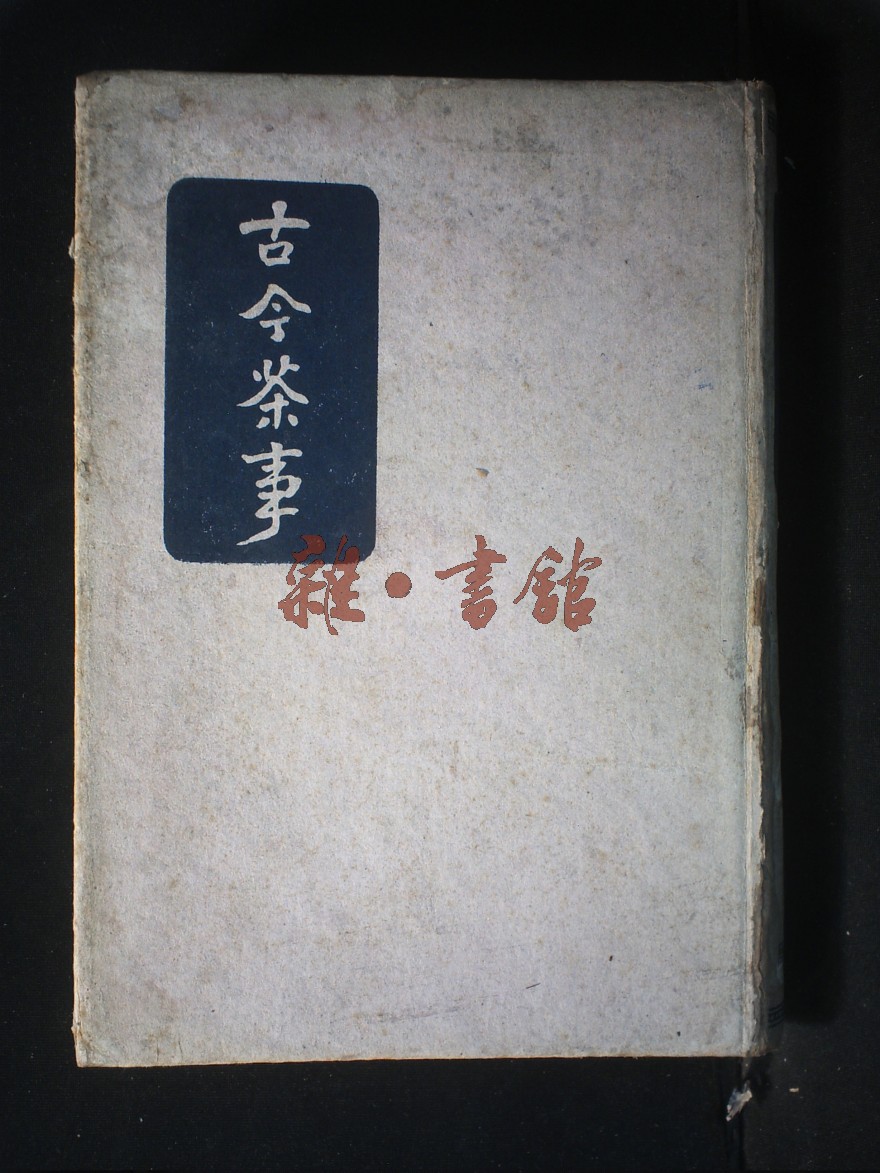 古今茶事
雜•書館